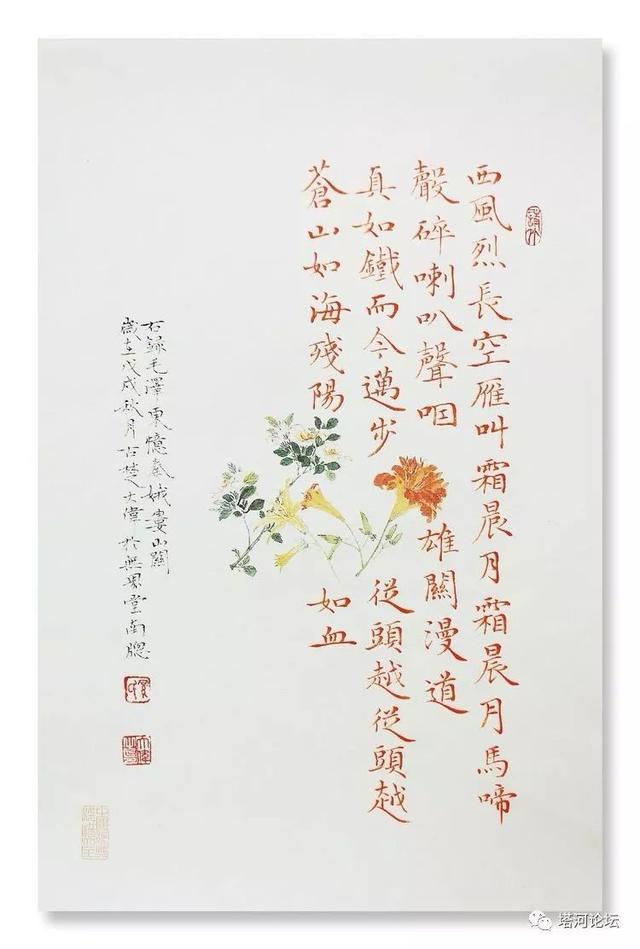 西風烈長空雁叫霜晨月霜晨月馬啼
殸碎喇叭聲咽雄關漫道
真如鐵而今邁步從頭越從頭越
蒼山如海殘陽如血
右録毛澤東憶秦娥婁山關
歲在戊戌秋月古楚大偉於無界堂南牕
塔河论坛